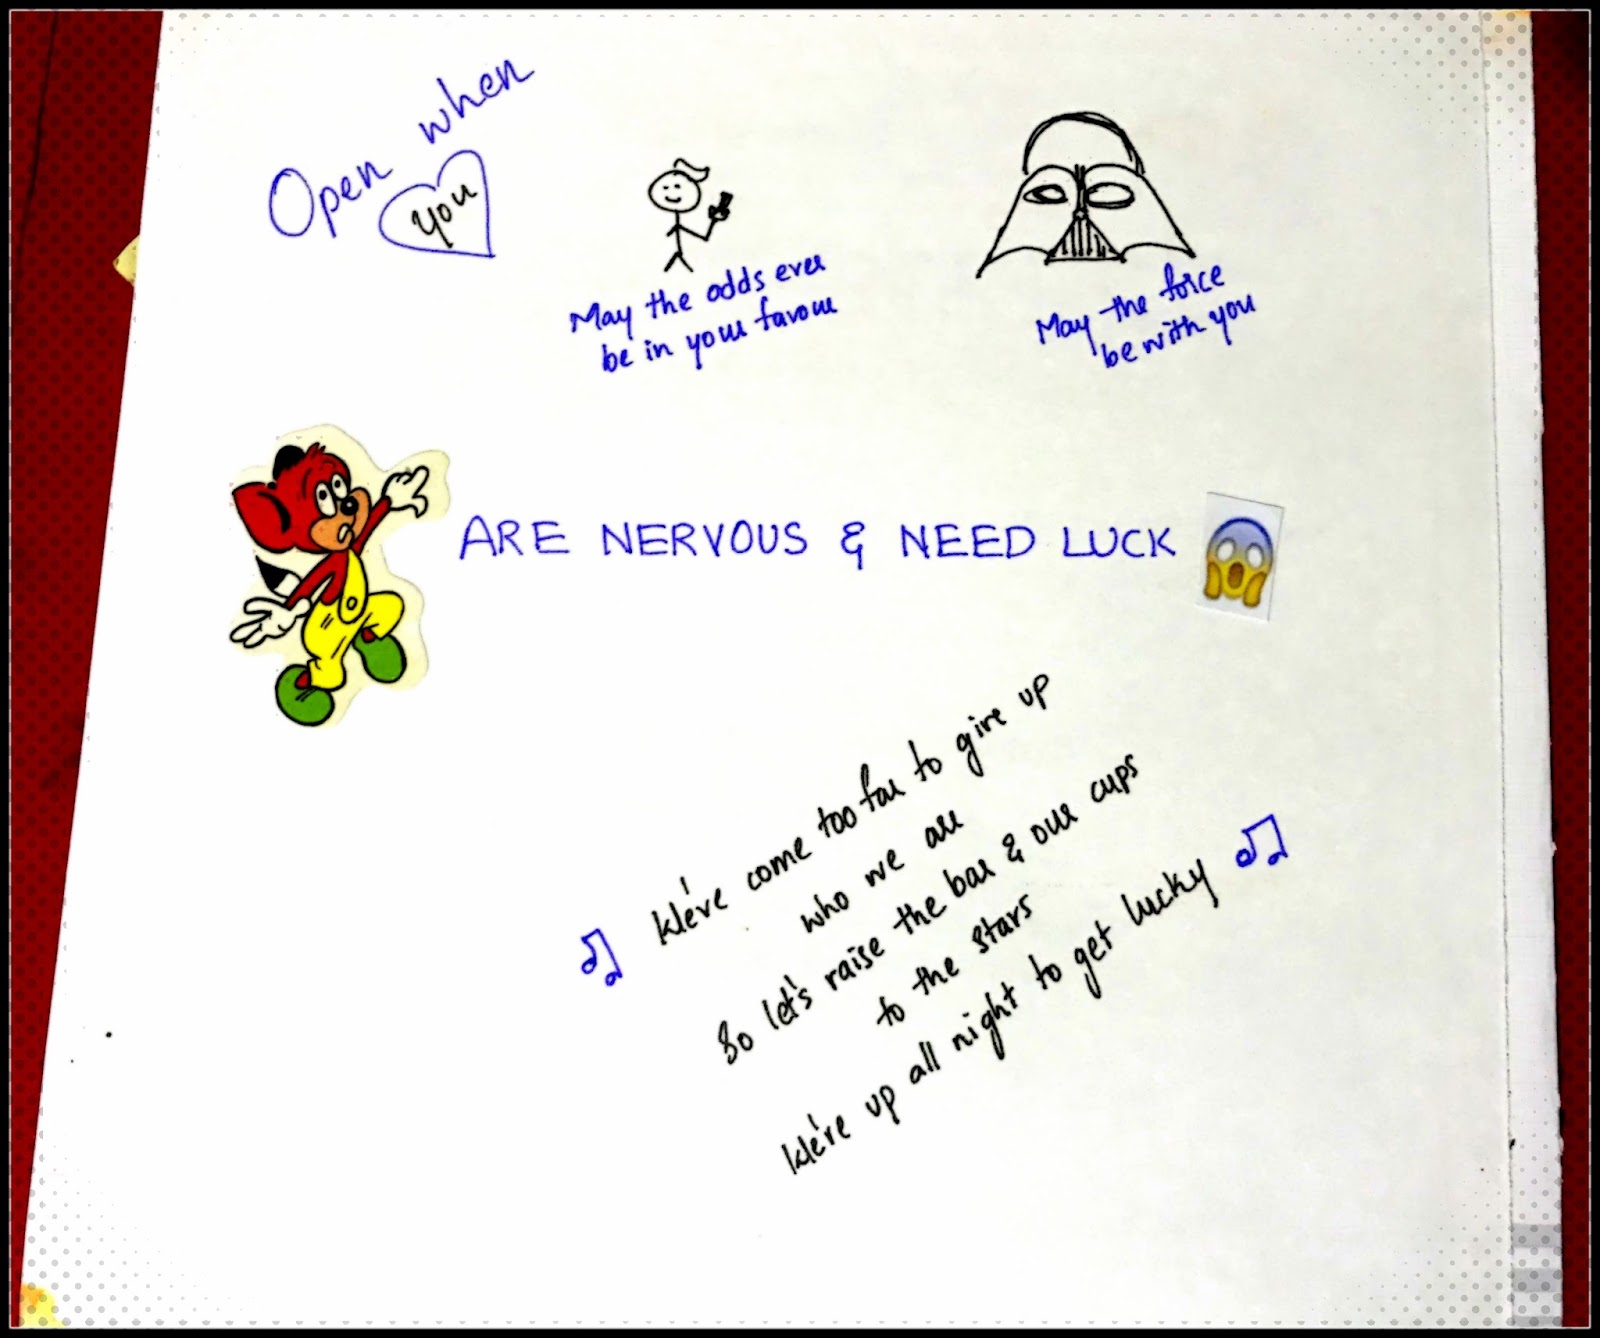 Open when
you
May the odds ever
be in your favour
May the force
be with you
ARE NERVOUS & NEED LUCK
We've come too far to give up
who we are
So let's raise the bar & our cups
to the stars
We're up all night to get lucky